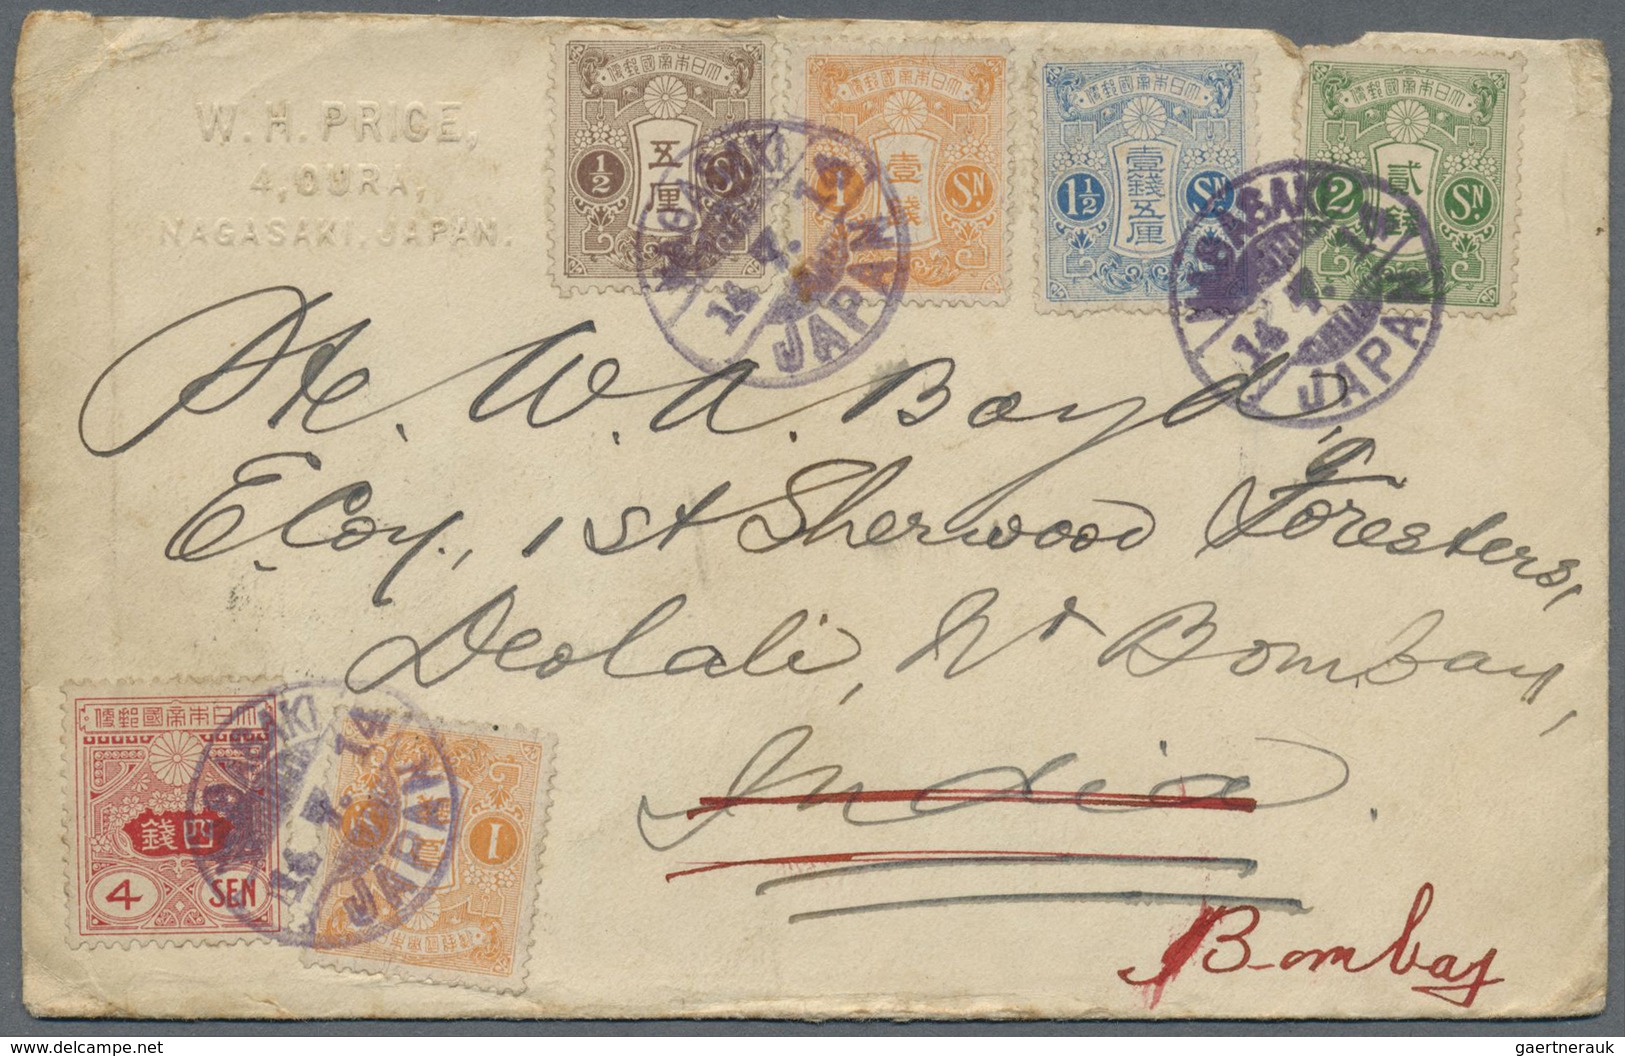 W. H. PRICE,
4, OURA,
NAGASAKI, JAPAN.
大日本帝國郵便
1/2
五厘
SN.
大日本帝國郵便
壹銭
SN.
大日本帝國郵便
1 1/2
壹錢五厘
SN.
大日本帝國郵便
2
貳錢
SN.
NAGASAKI
14.7.14
JAPAN
NAGASAKI
14.7.14
JAPAN
W. A. Boyd,
E. Coy., 1st Sherwood Foresters,
Deolali, Nr Bombay,
India.
Bombay
大日本帝國郵便
四錢
4 SEN
1
NAGASAKI
14.7.14
JAPAN
www.delcampe.net
gaertnerauk